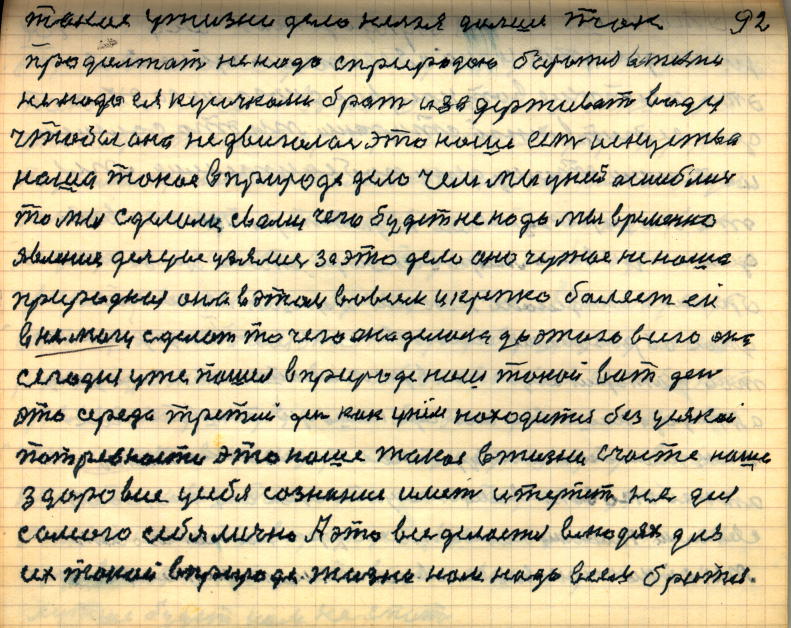 такое у жизни дело нельзя дальше так 92
продолжат не надо с природою
не надо ея кусичками брат и задерживат воду
чтобы она не двигалася это наше ест искуства
наша такое в природе дело чем мы у ней ошиблися
то мы сделали свами чего будет не надо мы временно
явление взялися за это дело оно чужое не наше
природная она в этом вовсем и крепко болеет ей
в немощи сделат то чего она делала до этого всего она
сегодня уже пошел в природе наш такой вот ден
это середа третий ден как у нём находится без усякой
потребности это наше такое в жизни счасте наше
здоровие у себя сознание имет и терпет не для
самого себя лично А это все делается в людях для
их такой в природе жизни нам надо всем